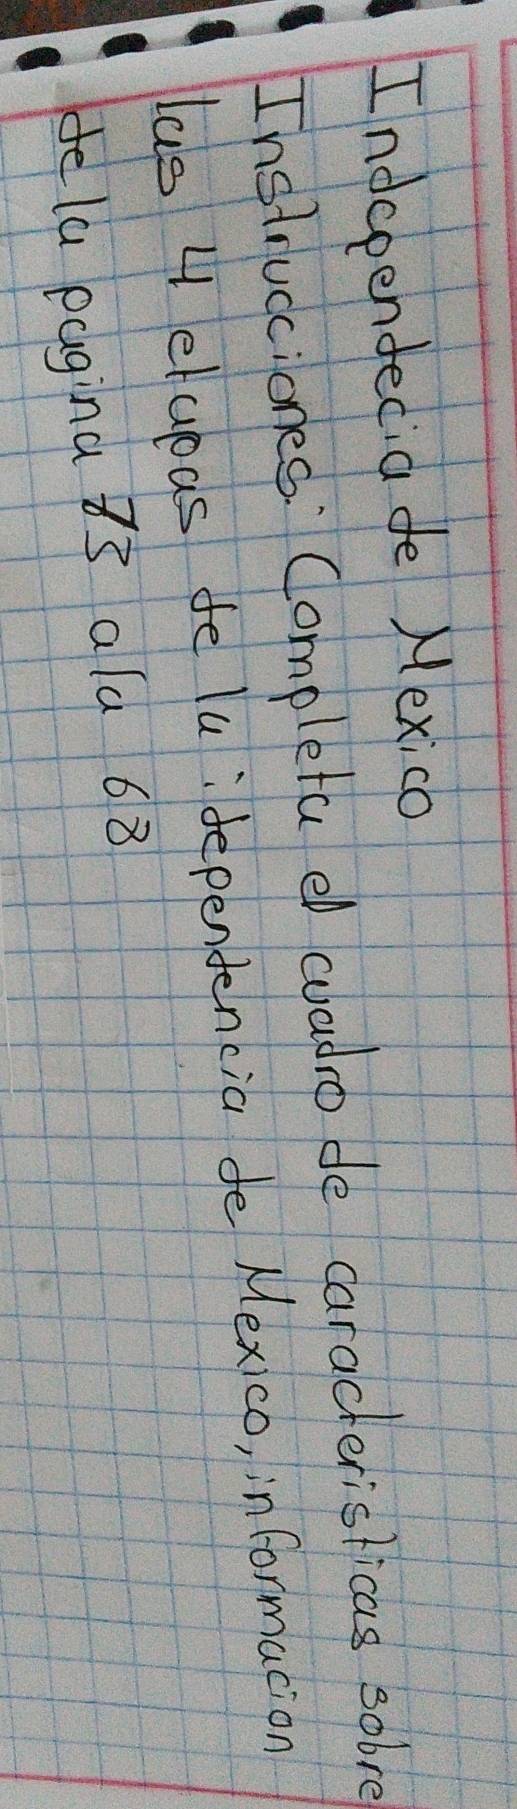 Independecia de Mexico
Instrucciones: Completa el cuadro de caracteristicas sobre
las 4 etapas de la idependencia de Mexico, informacion
de la pagina 73 a la 68